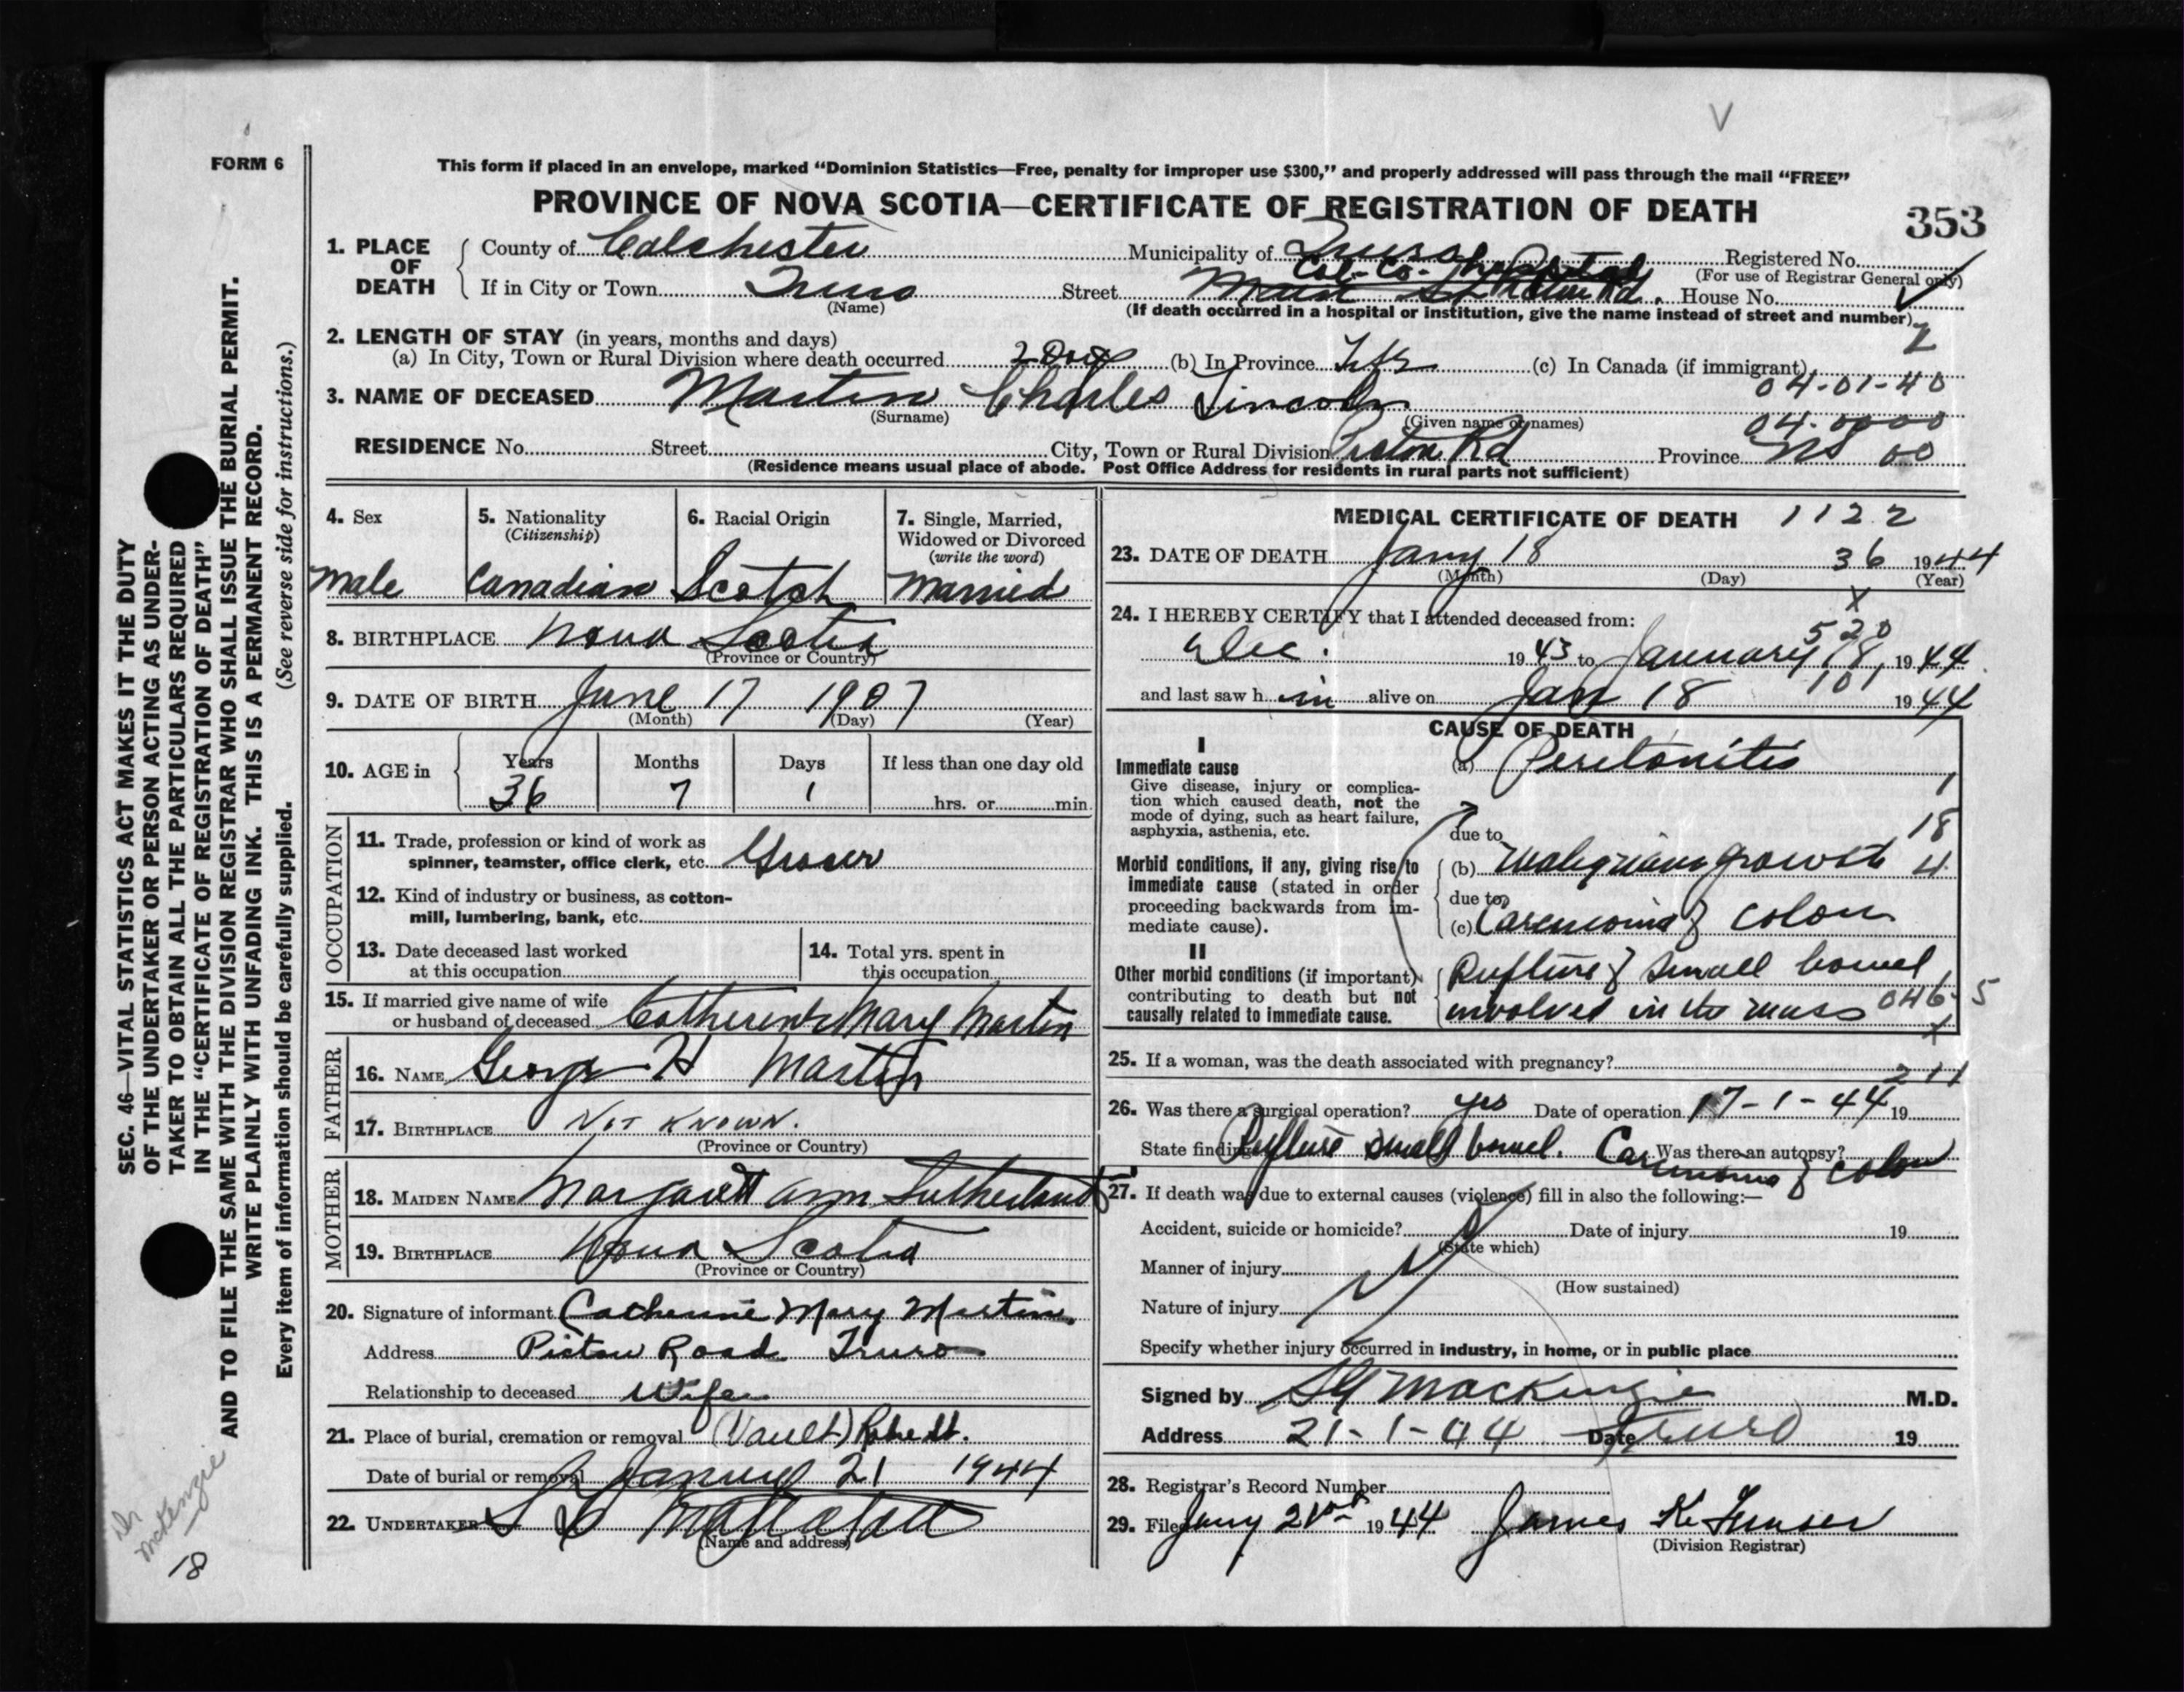 V
FORM 6
This form if placed in an envelope, marked “Dominion Statistics—Free, penalty for improper use $300,” and properly addressed will pass through the mail “FREE”
PROVINCE OF NOVA SCOTIA—CERTIFICATE OF REGISTRATION OF DEATH
353
1. PLACE OF DEATH
County of Colchester Municipality of Truro Registered No.
(For use of Registrar General only)
Col-Co-Hospital
If in City or Town Truro Street Main St House No.
(Name) (If death occurred in a hospital or institution, give the name instead of street and number)
2. LENGTH OF STAY (in years, months and days)
2
(a) In City, Town or Rural Division where death occurred 2 Days (b) In Province Life (c) In Canada (if immigrant)
04-01-40
3. NAME OF DECEASED Martin Charles Lincoln
(Surname) (Given name or names)
04-0000
RESIDENCE No. Street City, Town or Rural Division Pictou Rd Province NS 00
(Residence means usual place of abode. Post Office Address for residents in rural parts not sufficient)
4. Sex
Male
5. Nationality
(Citizenship)
Canadian
6. Racial Origin
Scotch
7. Single, Married,
Widowed or Divorced
(write the word)
Married
8. BIRTHPLACE Nova Scotia
(Province or Country)
9. DATE OF BIRTH June 17 1907
(Month) (Day) (Year)
10. AGE in
Years Months Days If less than one day old
36 7 1 hrs. or min.
OCCUPATION
11. Trade, profession or kind of work as
spinner, teamster, office clerk, etc. Grocer
12. Kind of industry or business, as cotton-
mill, lumbering, bank, etc.
13. Date deceased last worked
at this occupation
14. Total yrs. spent in
this occupation
15. If married give name of wife
or husband of deceased Catherine Mary Martin
FATHER
16. NAME George H Martin
17. BIRTHPLACE NOT KNOWN.
(Province or Country)
MOTHER
18. MAIDEN NAME Margarett Ann Sutherland
19. BIRTHPLACE Nova Scotia
(Province or Country)
20. Signature of informant Catherine Mary Martin
Address Pictou Road Truro
Relationship to deceased Wife
21. Place of burial, cremation or removal (Vault) Robie St.
Date of burial or removal January 21 1944
22. UNDERTAKER
(Name and address)
MEDICAL CERTIFICATE OF DEATH 1122
23. DATE OF DEATH Jany 18 36 1944
(Month) (Day) (Year)
X
24. I HEREBY CERTIFY that I attended deceased from:
520
Dec. 1943 to January 18, 1944.
101
and last saw h im alive on Jan 18 1944
CAUSE OF DEATH
I
Immediate cause
Give disease, injury or complica-
tion which caused death, not the
mode of dying, such as heart failure,
asphyxia, asthenia, etc.
(a) Peritonitis
1
due to
18
Morbid conditions, if any, giving rise to
immediate cause (stated in order
proceeding backwards from im-
mediate cause).
(b) Malignant growth 4
due to
(c) Carcinoma of colon
II
Other morbid conditions (if important)
contributing to death but not
causally related to immediate cause.
Rupture of small bowel
involved in the mass 046-5
X
25. If a woman, was the death associated with pregnancy?
211
26. Was there a surgical operation? yes Date of operation 17-1-44 19
State findings Rupture small bowel. Carcinoma of colon Was there an autopsy?
27. If death was due to external causes (violence) fill in also the following:—
Accident, suicide or homicide? Date of injury 19
(State which)
Manner of injury
(How sustained)
Nature of injury
Specify whether injury occurred in industry, in home, or in public place
Signed by SG MacKenzie M.D.
Address 21-1-44 Date Truro 19
28. Registrar's Record Number
29. Filed Jany 21st 1944 James K.
(Division Registrar)
SEC. 46—VITAL STATISTICS ACT MAKES IT THE DUTY
OF THE UNDERTAKER OR PERSON ACTING AS UNDER-
TAKER TO OBTAIN ALL THE PARTICULARS REQUIRED
IN THE “CERTIFICATE OF REGISTRATION OF DEATH”
AND TO FILE THE SAME WITH THE DIVISION REGISTRAR WHO SHALL ISSUE THE BURIAL PERMIT.
WRITE PLAINLY WITH UNFADING INK. THIS IS A PERMANENT RECORD.
Every item of information should be carefully supplied. (See reverse side for instructions.)
Dr
McKenzie
18